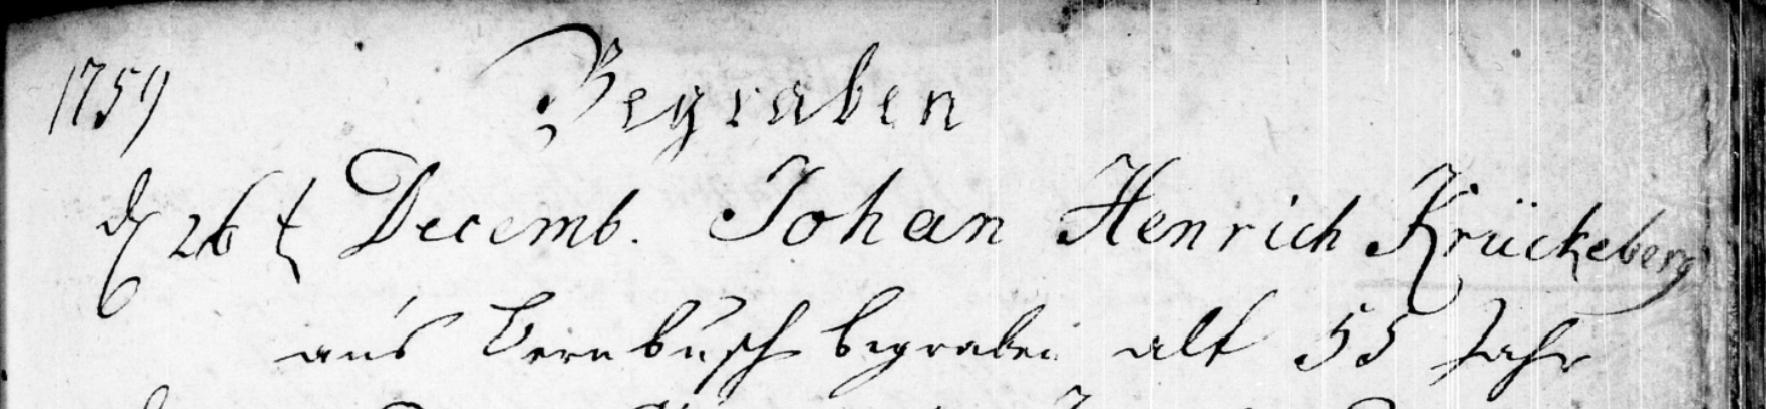 1759 Begraben
d 26 t Decemb. Johan Henrich Krückeberg
aus Bernbusch begraben alt 55 Jahr